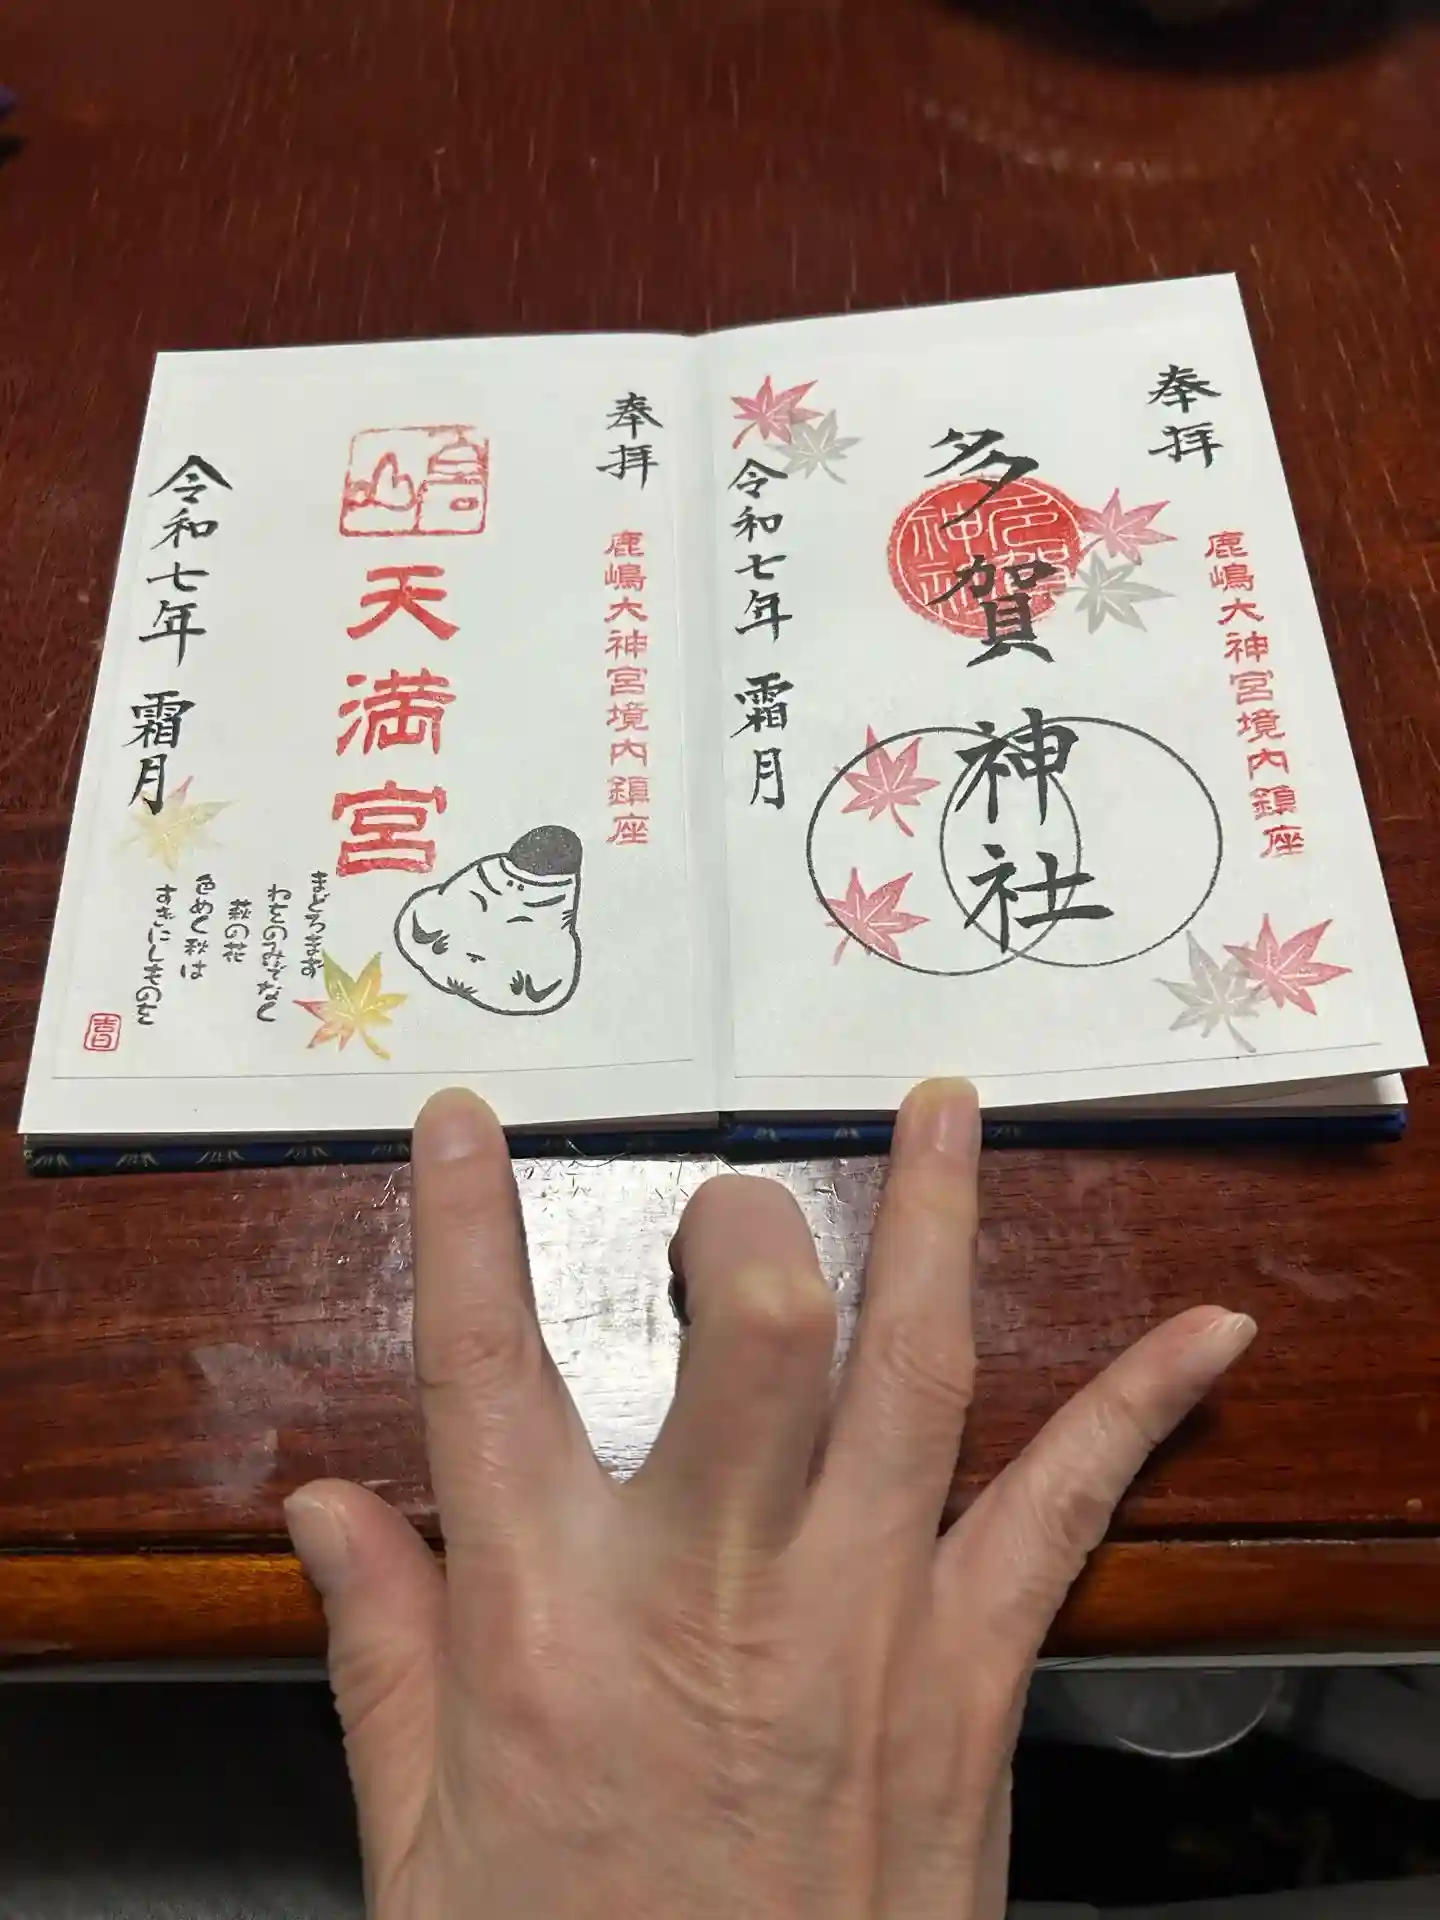 奉拝
鹿嶋大神宮境内鎮座
多賀神社
令和七年 霜月
奉拝
鹿嶋大神宮境内鎮座
天満宮
まどろまず
わをのみでなく
萩の花
色めく秋は
すぎにしものを
令和七年 霜月